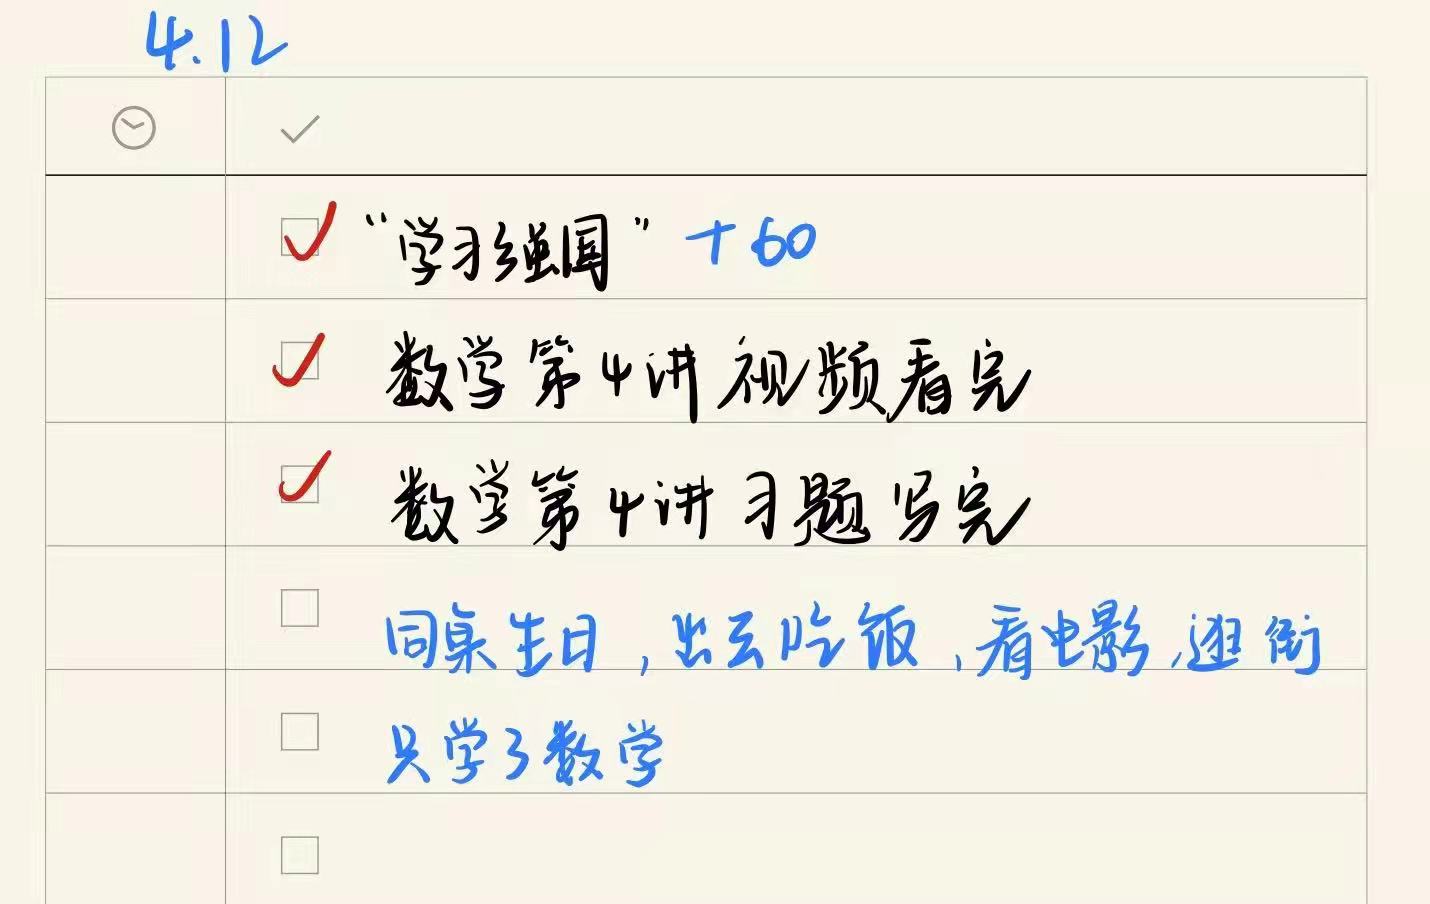 4.12
“学习强国” +60
数学第4讲视频看完
数学第4讲习题写完
同桌生日,出去吃饭,看电影,逛街
只学了数学